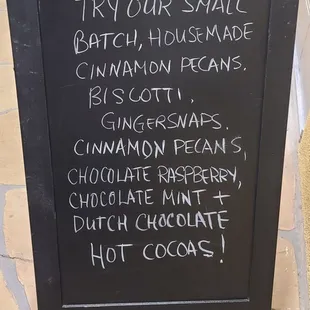 TRY OUR SMALL
BATCH, HOUSEMADE
CINNAMON PECANS.
BISCOTTI.
GINGERSNAPS.
CINNAMON PECANS,
CHOCOLATE RASPBERRY,
CHOCOLATE MINT +
DUTCH CHOCOLATE
HOT COCOAS!